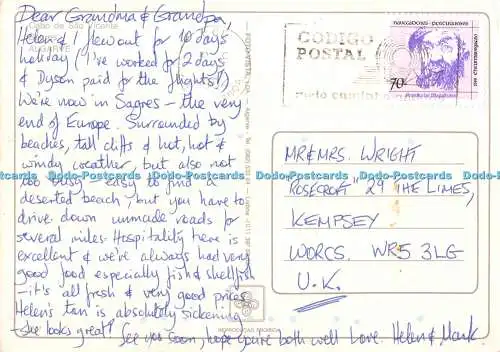 Dear Grandma & Grandpa,
Cabo de São Vicente
Helen & I flew out for 10 days
ALGARVE
holiday (I've worked for 2 days
& Dyson paid for the flights!)
We're now in Sagres - the very
end of Europe. Surrounded by
beaches, tall cliffs & hot, hot &
windy weather, but also not
too busy - easy to find a
deserted beach, but you have to
drive down unmade roads for
several miles. Hospitality here is
excellent & we've always had very
good food especially fish & shellfish
- it's all fresh & very good prices
Helen's tan is absolutely sickening
- she looks great! See you soon, hope you're both well Love. Helen & Mark
CÓDIGO
POSTAL
meio caminho
NAVEGADORES PORTUGUESES
70
MR & MRS. WRIGHT
"ROSECROFT" 29 THE LIMES,
KEMPSEY
WORCS. WR5 3LG
U.K.
x-Postcards.com